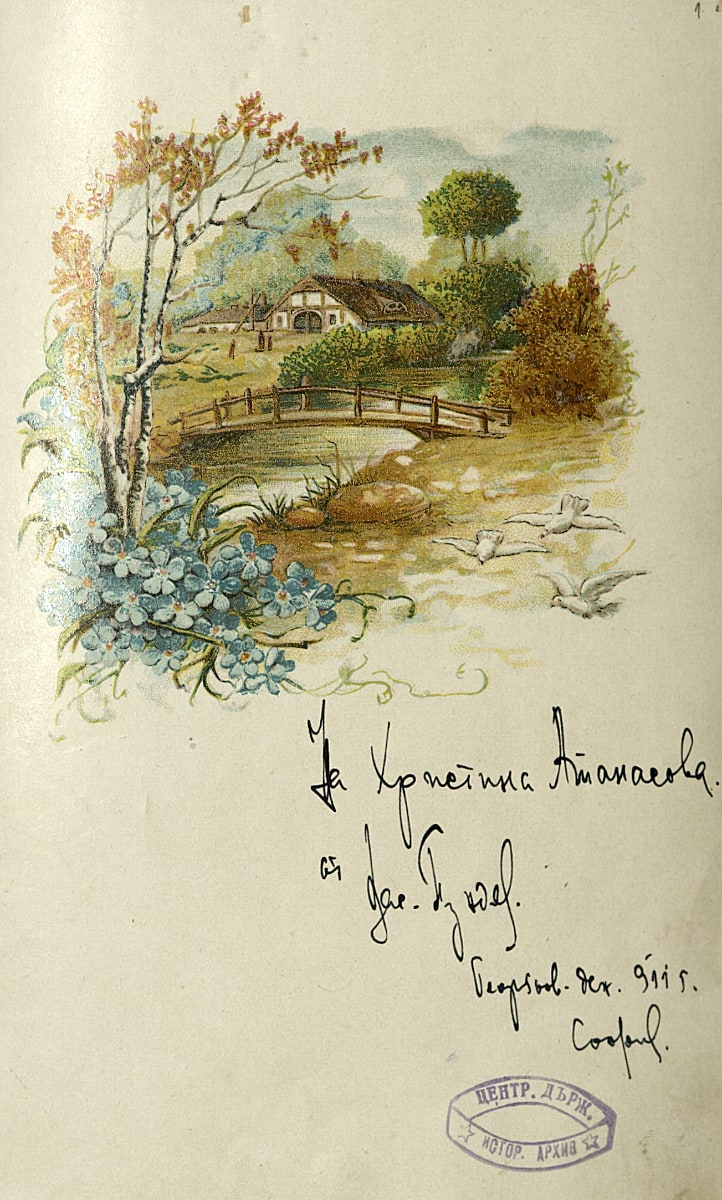 1
На Христина Атанасова.
от
Георгьов-ден. 911 г.
София.
ЦЕНТР. ДЪРЖ.
ИСТОР. АРХИВ